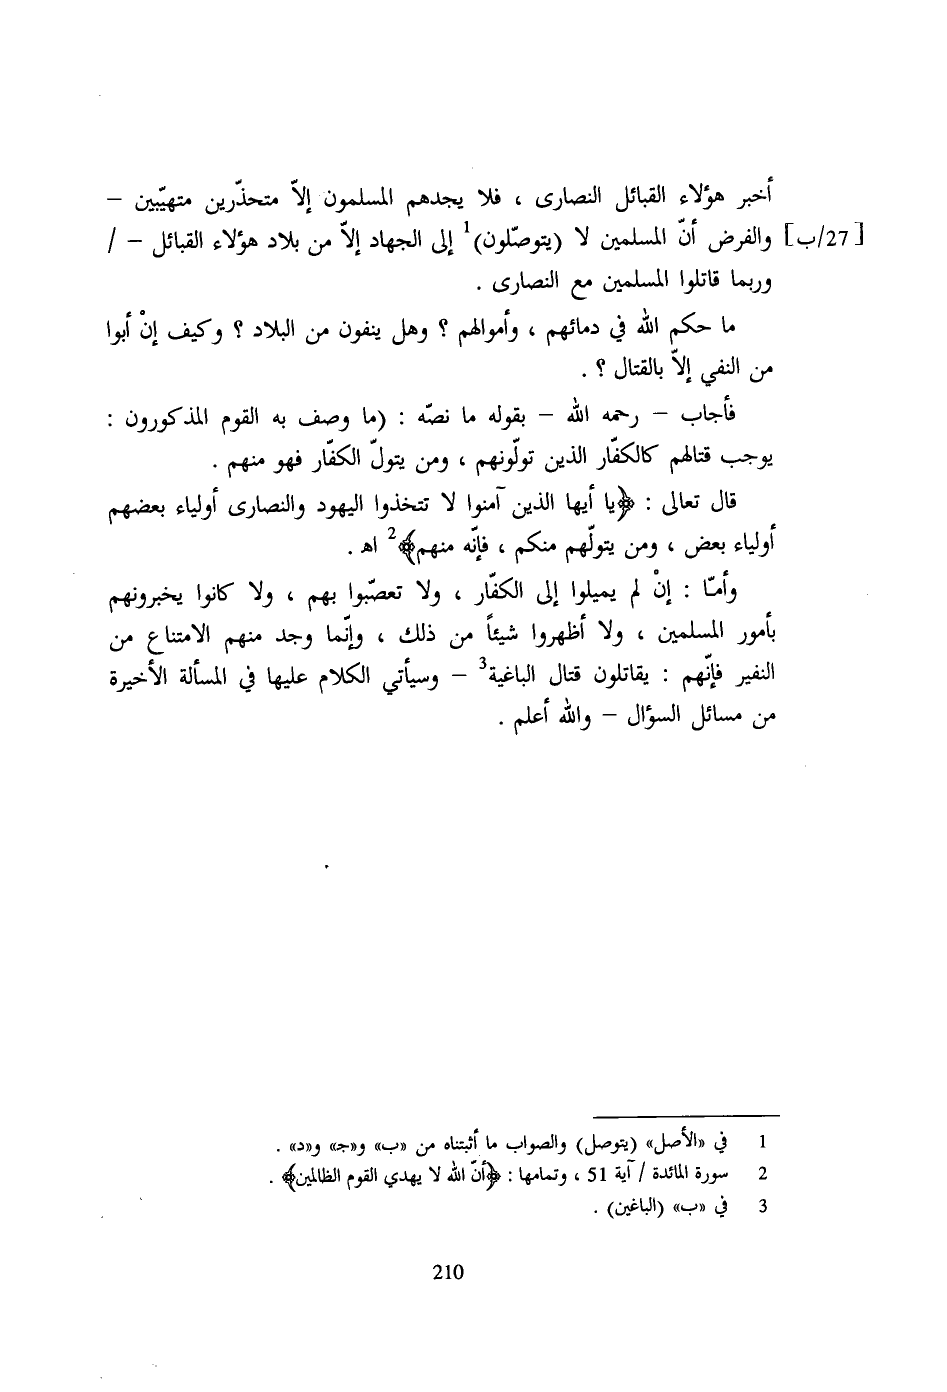 أخبر هؤلاء القبائل النصارى ، فلا يجدهم المسلمون إلاّ متحذّرين متهيّبين –
[27/ب] والفرض أنّ المسلمين لا (يتوصّلون)1 إلى الجهاد إلاّ من بلاد هؤلاء القبائل – /
وربما قاتلوا المسلمين مع النصارى .
ما حكم الله في دمائهم ، وأموالهم ؟ وهل ينفون من البلاد ؟ وكيف إنْ أبوا
من النفي إلاّ بالقتال ؟ .
فأجاب – رحمه الله – بقوله ما نصّه : (ما وصف به القوم المذكورون :
يوجب قتالهم كالكفّار الذين تولّونهم ، ومن يتولّ الكفّار فهو منهم .
قال تعالى : ﴿يا أيها الذين آمنوا لا تتخذوا اليهود والنصارى أولياء بعضهم
أولياء بعض ، ومن يتولّهم منكم ، فإنّه منهم﴾2 اهـ .
وأمّا : إنْ لم يميلوا إلى الكفّار ، ولا تعصّبوا بهم ، ولا كانوا يخبرونهم
بأمور المسلمين ، ولا أظهروا شيئاً من ذلك ، وإنّما وجد منهم الامتناع من
النفير فإنّهم : يقاتلون قتال الباغية3 – وسيأتي الكلام عليها في المسألة الأخيرة
من مسائل السؤال – والله أعلم .
1 في «الأصل» (يتوصل) والصواب ما أثبتناه من «ب» و«جـ» و«د» .
2 سورة المائدة / آية 51 ، وتمامها : ﴿أنّ الله لا يهدي القوم الظالمين﴾ .
3 في «ب» (الباغين) .
210